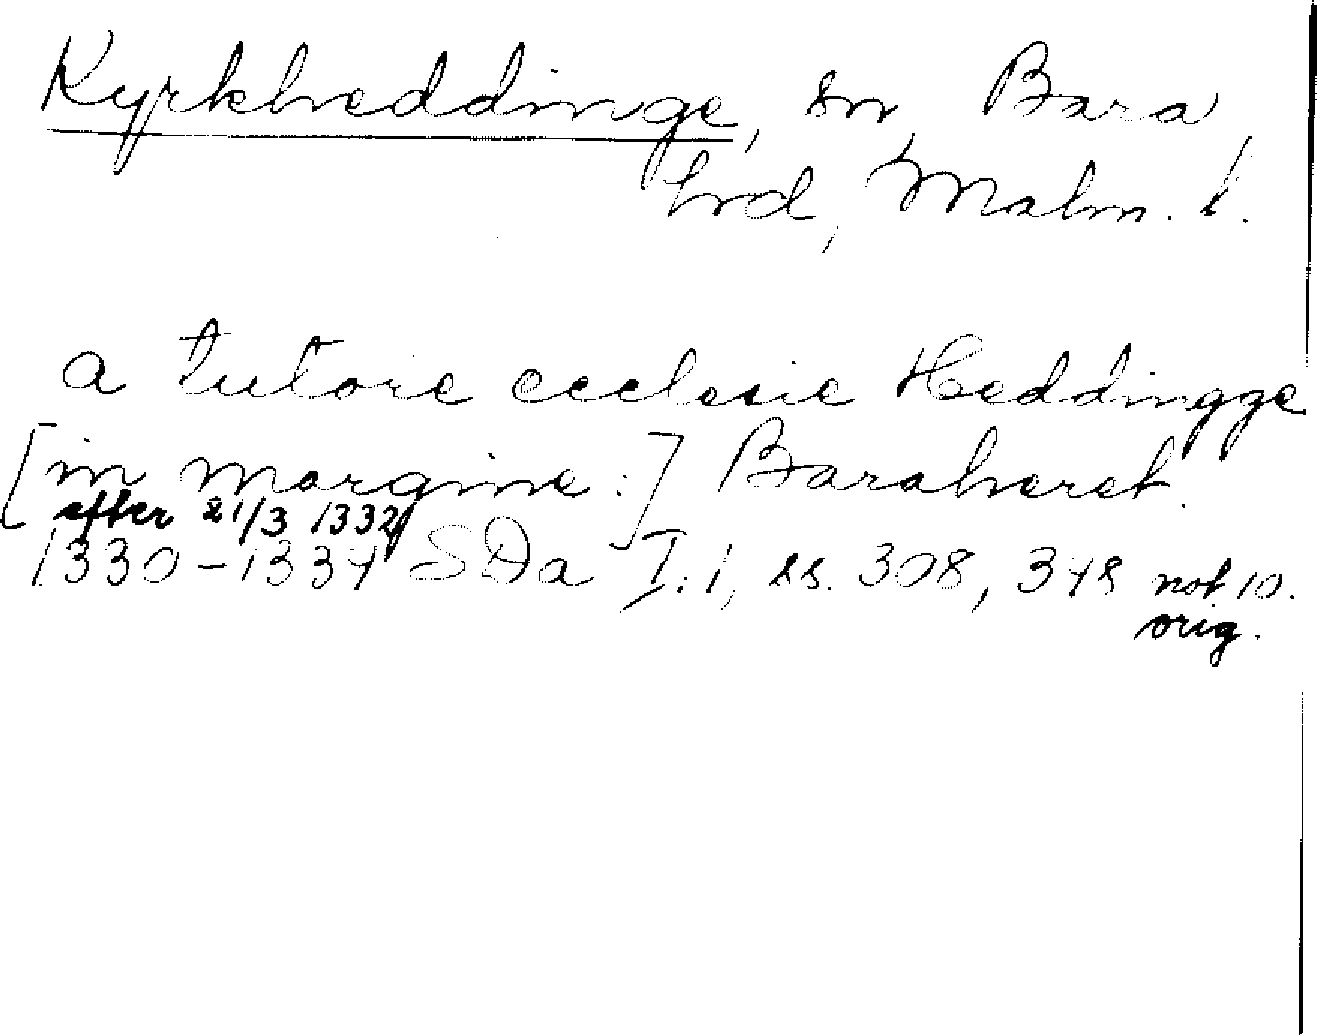 Kyrkheddinge, sn, Bara
hrd, Malm. l.
a tutore ecclesie Heddingge
[in margine:] Baraheret.
efter 21/3 1332
1330-1337 SDa I:1, ss. 308, 348 not 10.
orig.